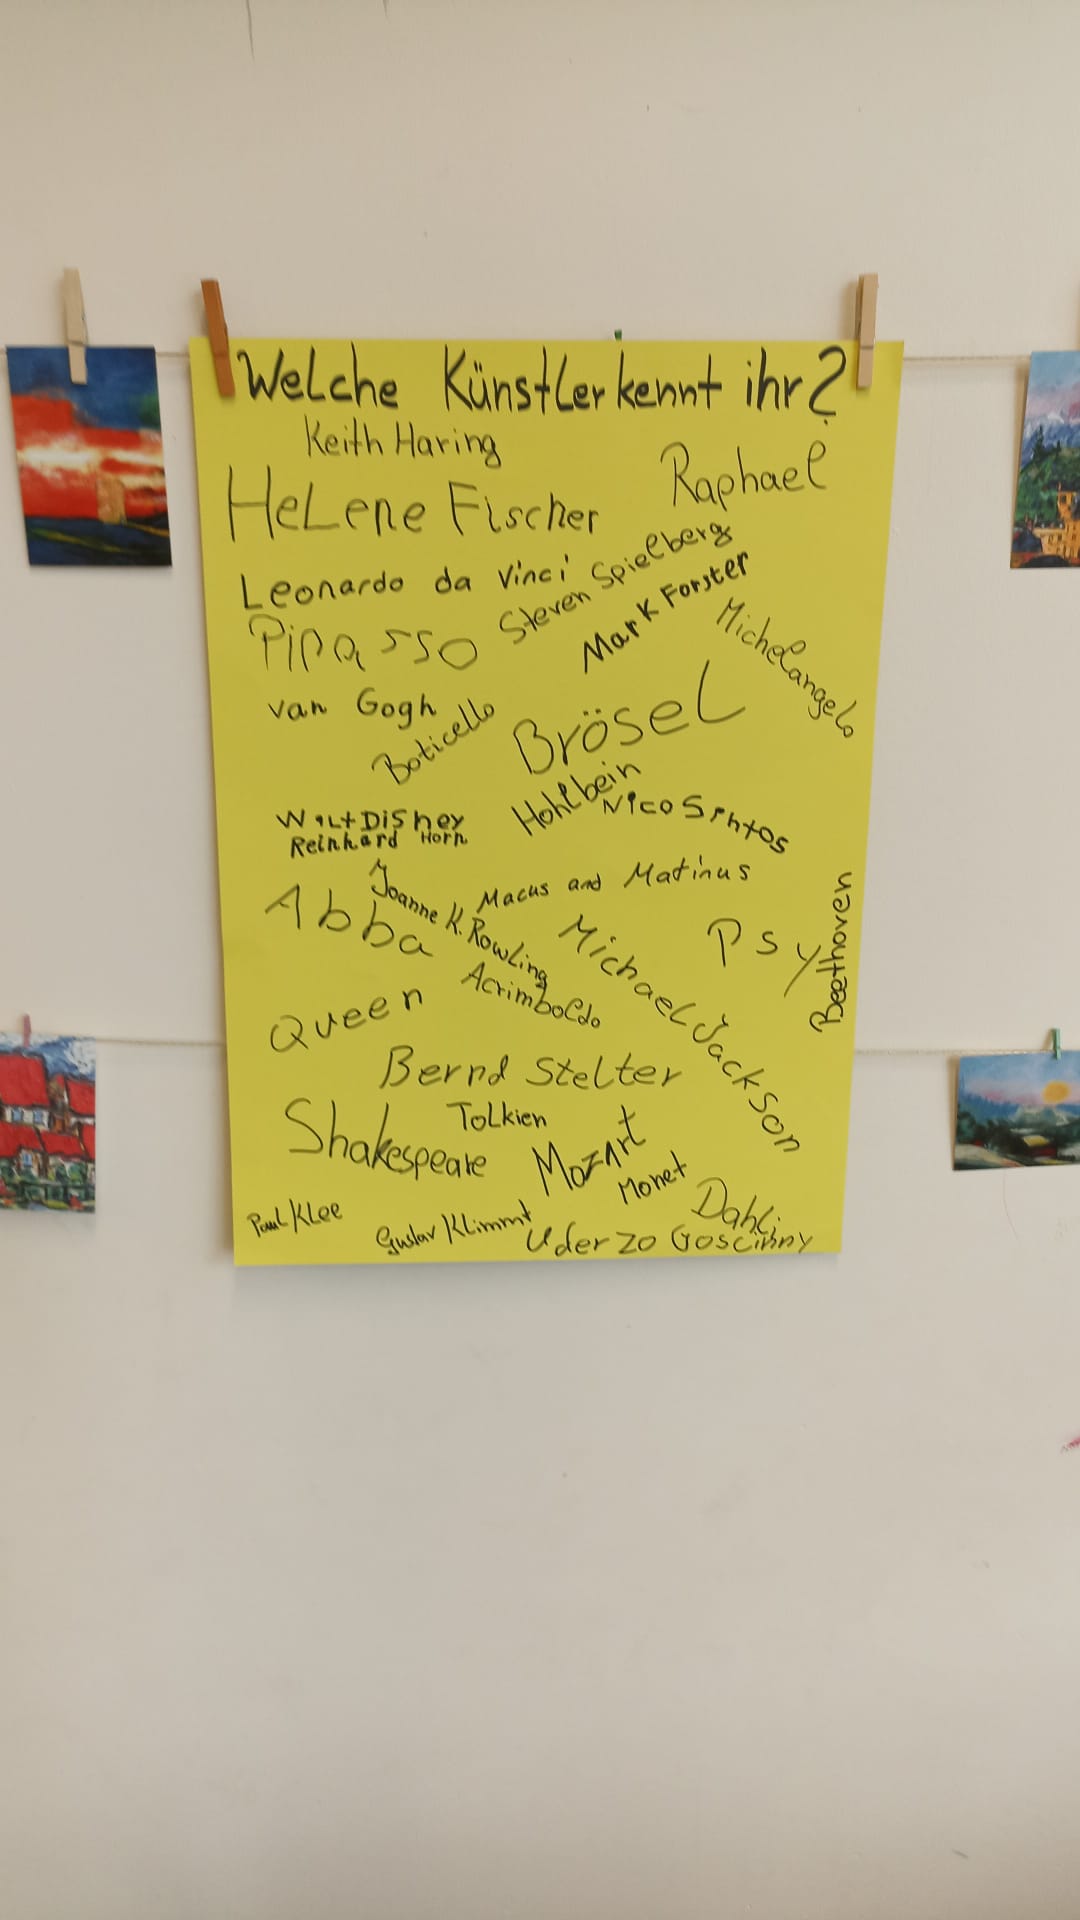 Welche Künstler kennt ihr?
Keith Haring
Raphael
Helene Fischer
Steven Spielberg
Leonardo da Vinci
Mark Forster
Michelangelo
Pipasso
van Gogh
Boticello
Brösel
Hohlbein
Nico Santos
Walt Disney
Reinhard Horn
Joanne K. Rowling
Macus and Matinus
Abba
Michael Jackson
Psy
Beethoven
Acrimboldo
Queen
Bernd Stelter
Tolkien
Shakespeare
Mozart
Monet
Dahli
Paul Klee
Gustav Klimmt
Uderzo Goscinny